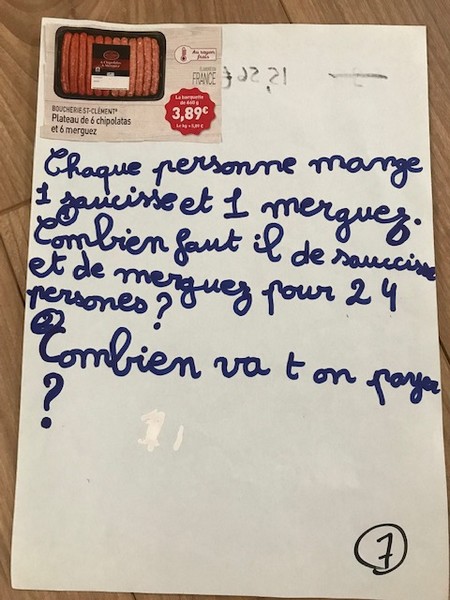 Au rayon
frais
FRANCE
La barquette
de 660 g
3,89€
Le kg = 5,89 €
BOUCHERIE ST-CLÉMENT
Plateau de 6 chipolatas
et 6 merguez
15,56€
Chaque personne mange
1 saucisse et 1 merguez.
Combien faut il de sauccisse
et de merguez pour 24
persones ?
②
Combien va t on payer
?
7